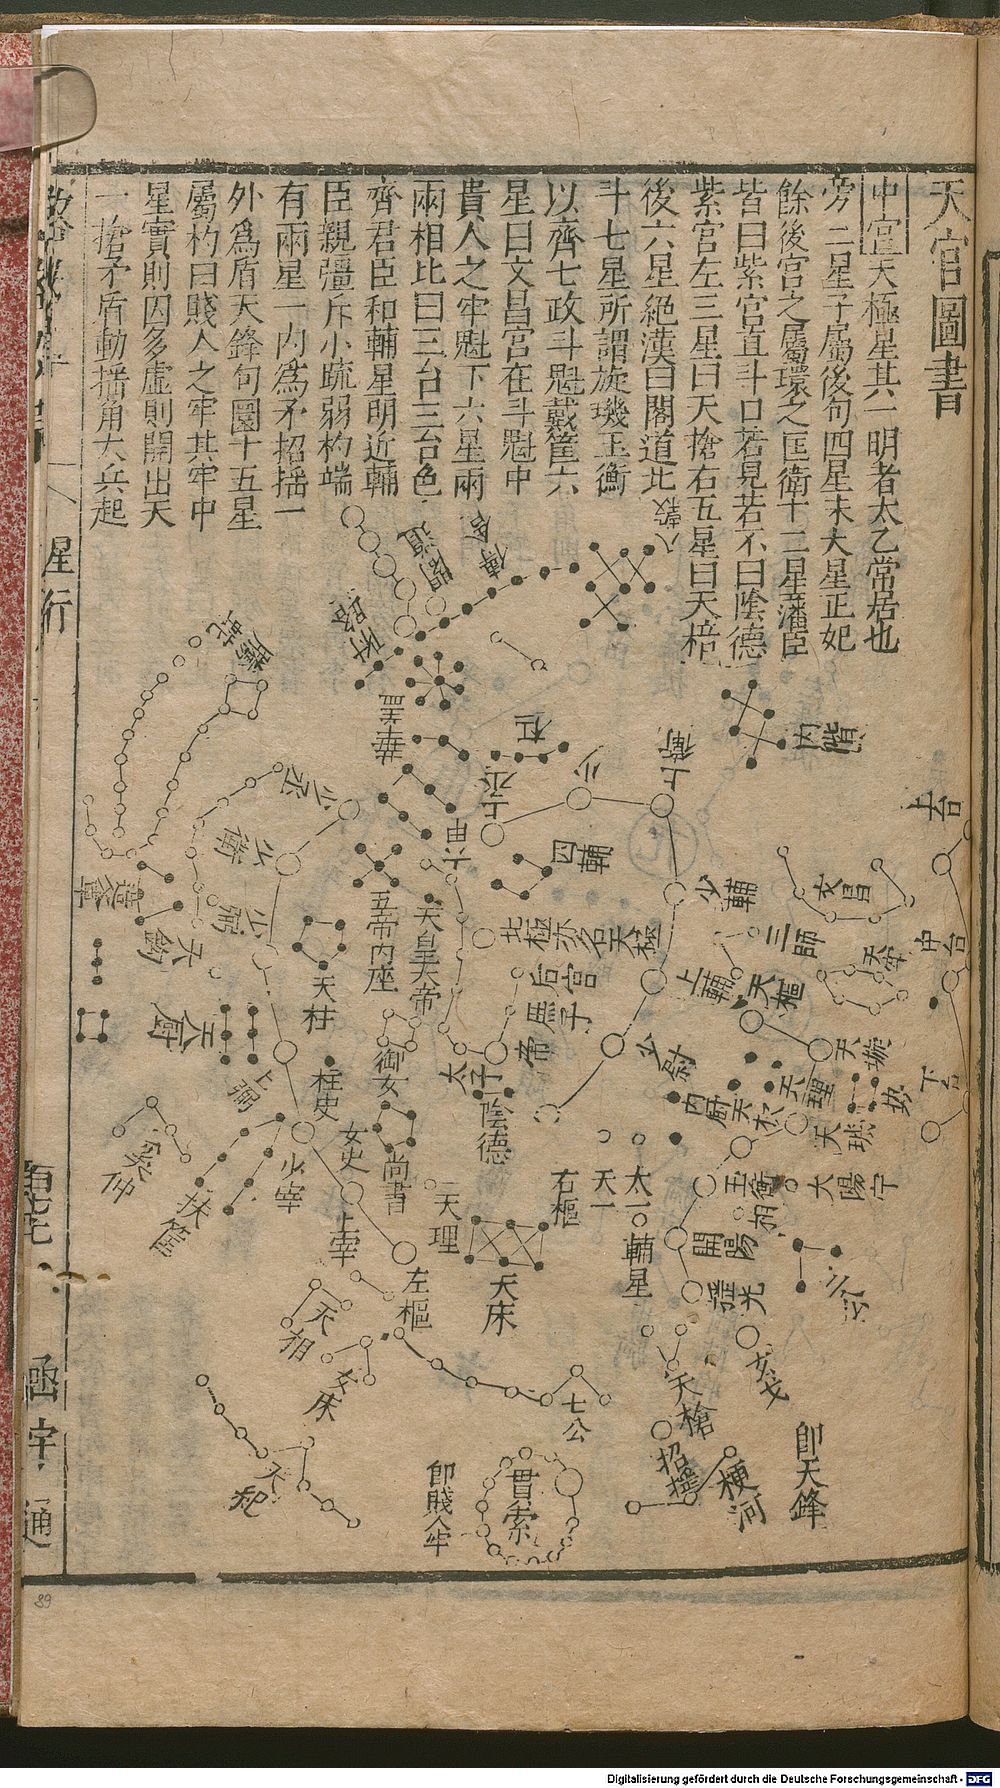 天官圖書
中宮天極星其一明者太乙常居也
旁二星子屬後句四星末大星正妃
餘後宮之屬環之匡衛十二星藩臣
皆曰紫宮直斗口若見若不曰陰德
紫宮左三星曰天搶右五星曰天棓
後六星絕漢曰閣道北
斗七星所謂旋璣玉衡
以齊七政斗魁戴筐六
星曰文昌宮在斗魁中
貴人之牢魁下六星兩
兩相比曰三台三台色
齊君臣和輔星明近輔
臣親彊斥小疏弱杓端
有兩星一內為矛招搖一
外為盾天鋒句圜十五星
屬杓曰賤人之牢其牢中
星實則囚多虛則開出天
一搶矛盾動搖角大兵起
八穀
傳舍
閣道
螣蛇
華蓋
杠
上衛
內階
上台
少丞
上丞
六甲
四輔
少衛
少輔
文昌
三師
中台
造父
天鉤
少弼
五帝內座
天皇大帝
北極亦名天極
后宮
庶子
帝
太子
上輔
天樞
天牢
天柱
天廚
御女
少尉
天璇
下台
勢
上弼
柱史
女史
尚書
陰德
內廚
天權
天理
天璣
奚仲
扶筐
少宰
上宰
天理
右樞
天一
太一
玉衡
太陽守
輔星
開陽
相
三公
瑤光
左樞
天床
天棓
女床
七公
天槍
玄戈
招搖
梗河
即天鋒
天紀
貫索
即賤人牢
星行
函宇通
39
Digitalisierung gefördert durch die Deutsche Forschungsgemeinschaft - DFG